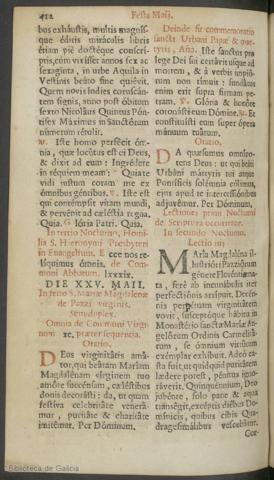 412
Festa Maij.
bus exhaustis, multis magnisque éditis miráculis libris
étiam piè doctéque conscríptis, cùm vixísset annos sex ac
sexaginta, in urbe Aquila in
Vestinis beáto fine quiévit.
Quem novis índies coruscántem signis, anno post óbitum
sexto Nicoláus Quintus Póntifex Máximus in Sanctórum
númerum rétulit.
℣. Iste homo perfécit ómnia, quæ locútus est ei Deus,
& dixit ad eum: Ingrédere
in réquiem meam: * Quia te
vidi justum coram me ex
ómnibus géntibus. ℣. Iste est
qui contémpsit vitam mundi,
& pervénit ad cæléstia regna.
Quia. Glória Patri. Quia.
In tertio Nocturno, Homilia S. Hieronymi Presbyteri
in Evangelium. Ecce nos relíquimus ómnia, de Communi Abbatum. lxxxix.
DIE XXV. MAII.
In festo S. Mariæ Magdalenæ
de Pazzi virginis.
Semiduplex.
Omnia de Communi Virginum xc. præter sequentia.
Oratio.
DEus virginitátis amátor, qui beátam Maríam
Magdalénam vírginem tuo
amóre succénsam, cæléstibus
donis decorásti: da, ut quam
festíva celebritáte venerámur, puritáte & charitáte
imitémur. Per Dóminum.
Deinde fit commemoratio
sancti Urbani Papæ & martyris, Aña. Iste sanctus pro
lege Dei sui certávit usque ad
mortem, & à verbis impiórum non tímuit; fundátus
enim erat supra firmam petram. ℣. Glória & honóre
coronásti eum Dómine. ℟. Et
constituísti eum super ópera
mánuum tuárum.
Oratio.
DA quǽsumus omnípotens Deus: ut qui beáti
Urbáni mártyris tui atque
Pontíficis solémnia cólimus,
ejus apud te intercessiónibus
adjuvémur. Per Dóminum.
Lectiones primi Nocturni
de Scriptura occurrente.
In secundo Nocturno.
Lectio iiij
MAría Magdalína illústri Pazziórum
génere Floréntiæ nata, ferè ab incunábulis iter
perfectiónis arrípuit. Decénnis perpétuam virginitátem
vovit, susceptóque hábitu in
Monastério sanctæ Maríæ Angelórum Ordinis Carmelitárum, se ómnium virtútum
exémplar exhíbuit. Adeò casta fuit, ut quidquid puritátem
lǽdere potest, pénitus ignoráverit. Quinquénnium, Deo
jubénte, solo pane & aqua
transégit, excéptis diébus Domínicis, quibus cibis Quadragesimálibus vescebátur.
Cor-
Biblioteca de Galicia